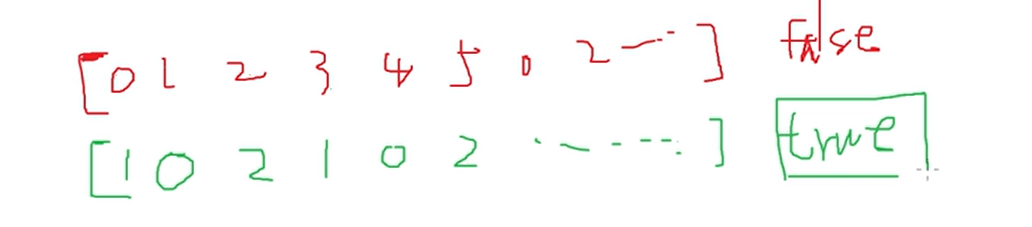 [0 1 2 3 4 5 0 2 ---] false
[1 0 2 1 0 2 ......] true